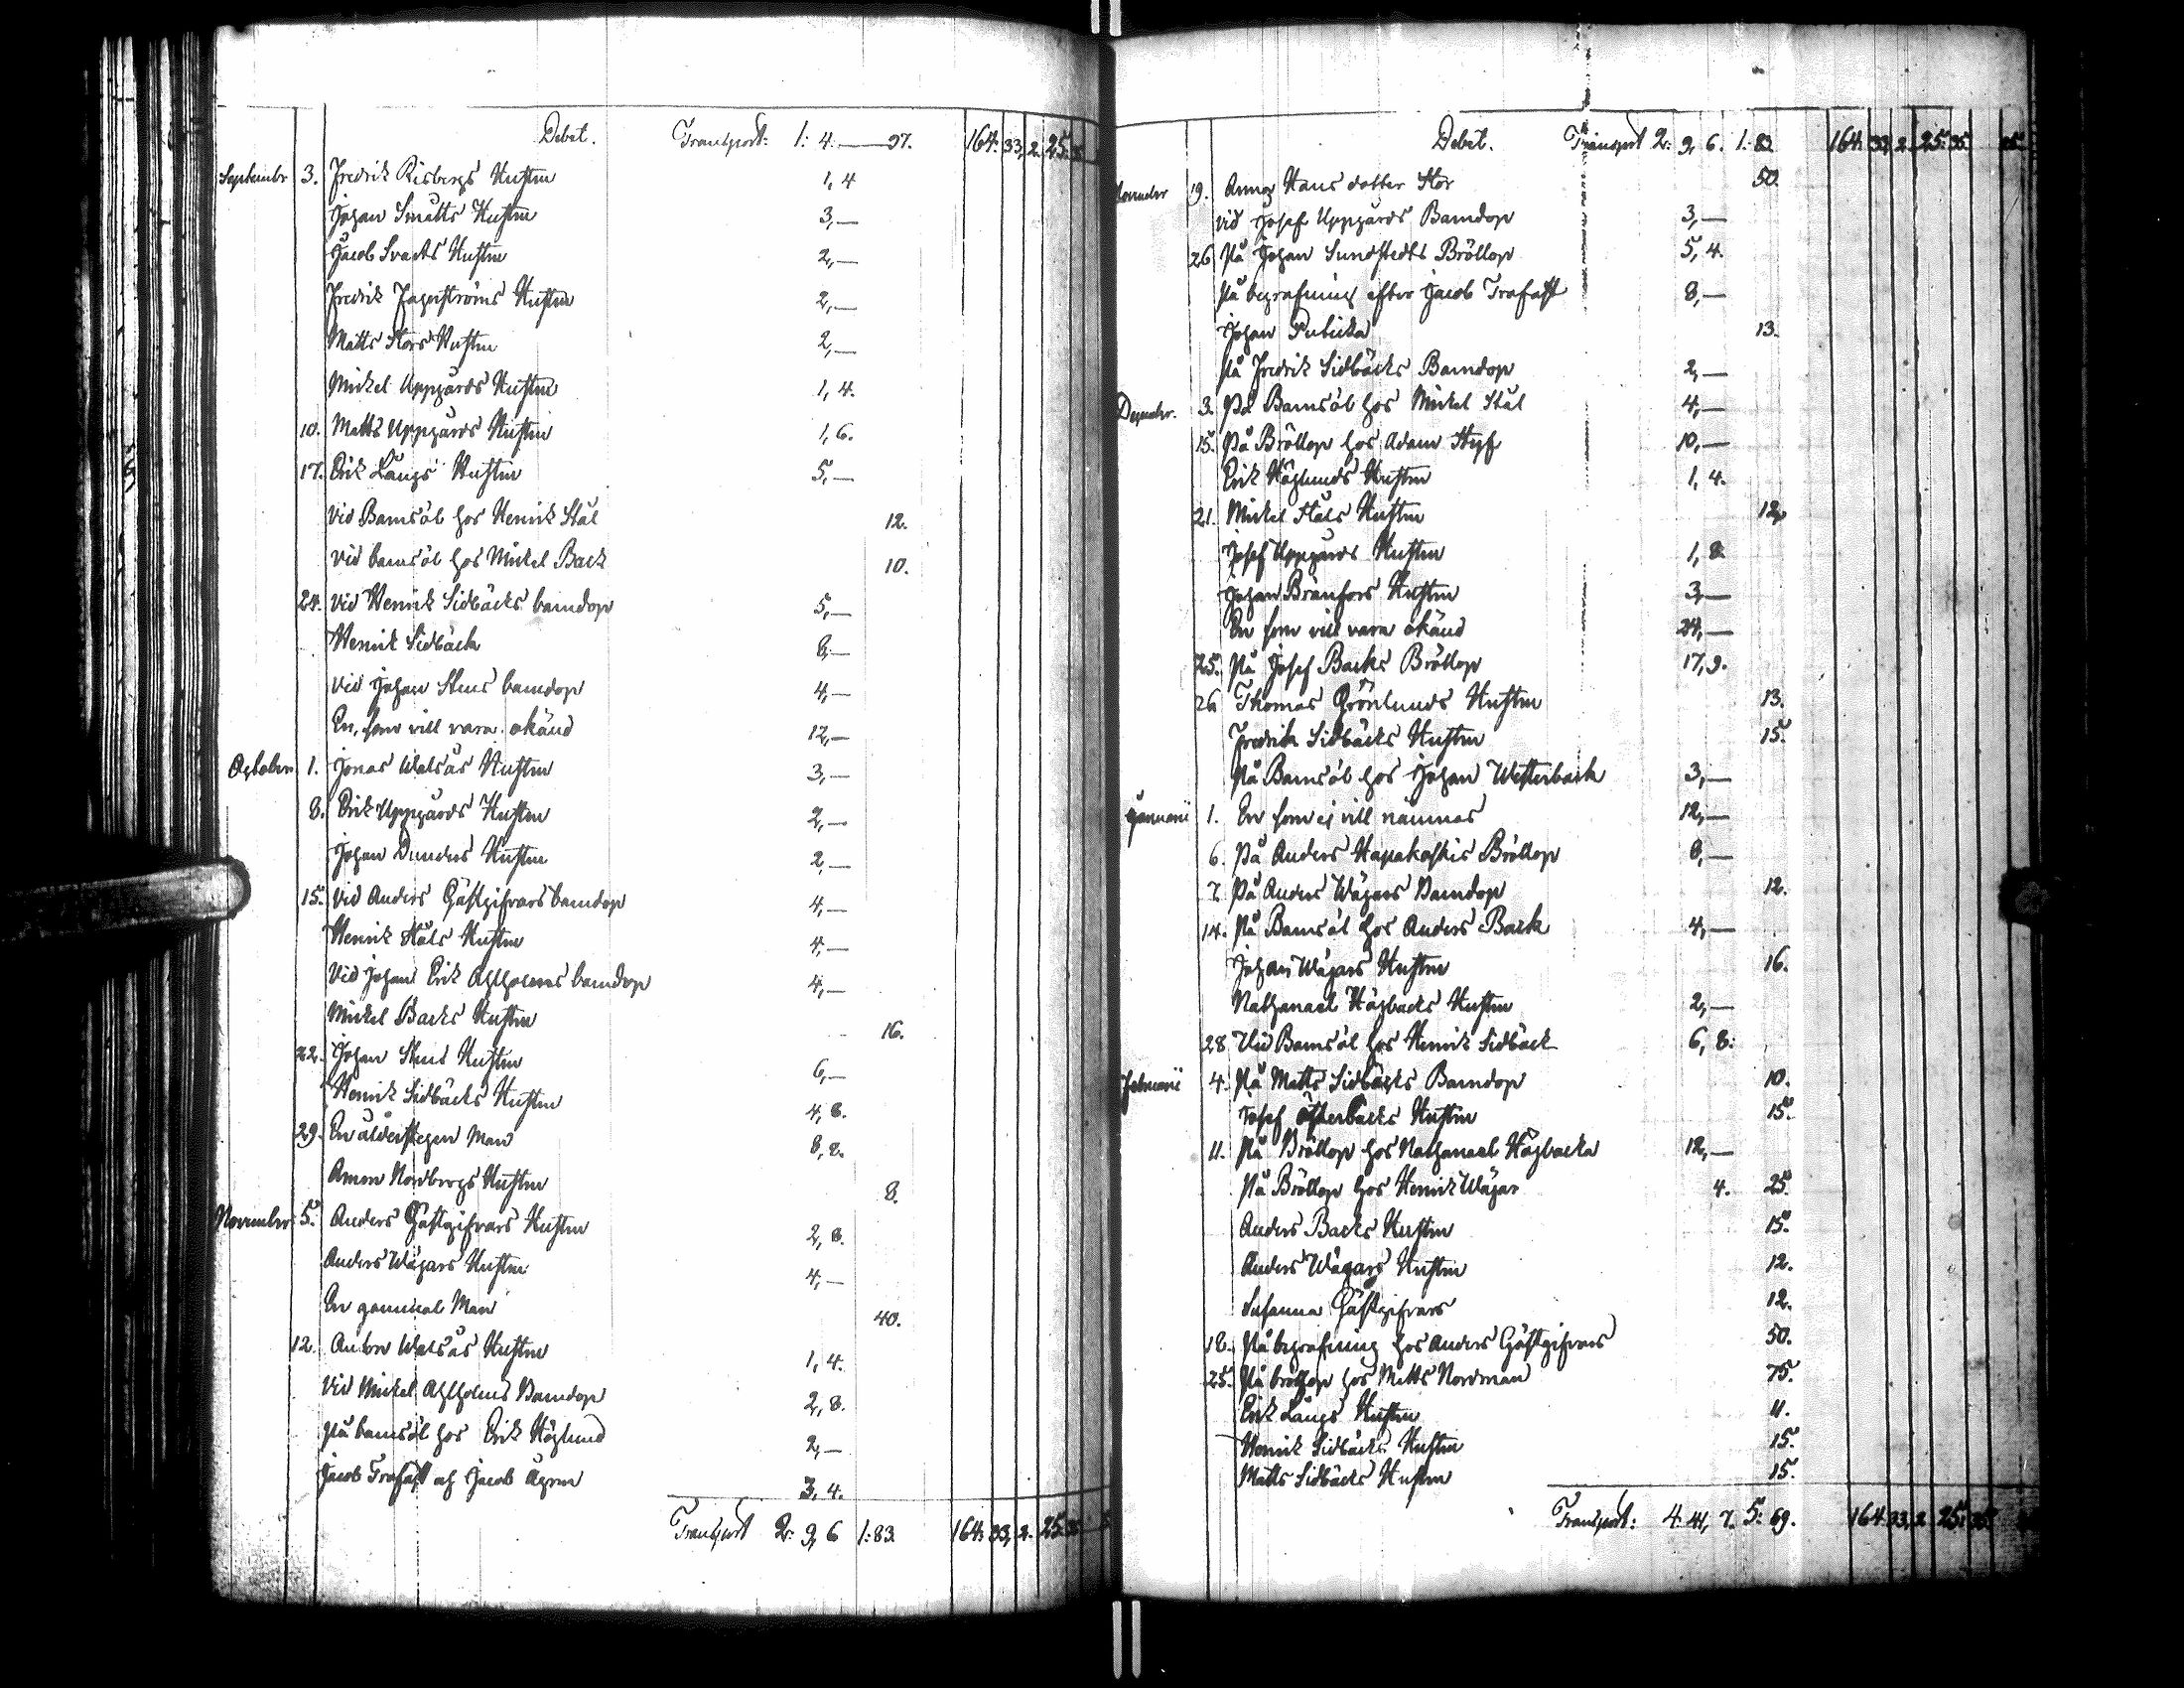 Debet. Transport: 1: 4. — 97. 164. 33, 2. 25. 35
Septembr 3. Fredrik Risbergs Hustru 1, 4
Johan Smatts Hustru 3, —
Jacob Svarts Hustru 2, —
Fredrik Fagerströms Hustru 2, —
Matts Stors Hustru 2, —
Mickel Uppgårds Hustru 1, 4.
10. Matts Uppgårds Hustru 1, 6.
17. Erik Långs Hustru 5, —
Vid Barnsöl hos Henrik Stål 12.
Vid barnsöl hos Mickel Back 10.
24. Vid Henrik Sidbäcks barndop 5, —
Henrik Sidbäck 8, —
Vid Johan Stens barndop 4, —
En, som vill vara okänd 12, —
October 1. Jonas Walsås Hustru 3, —
8. Erik Uppgårds Hustru 2, —
Johan Dunders Hustru 2, —
15. Vid Anders Gästgifvars barndop 4, —
Henrik Ståls Hustru 4, —
Vid Johan Erik Ahlholms barndop 4, —
Mickel Backs Hustru 16.
22. Johan Stens Hustru 6, —
Henrik Sidbäcks Hustru 4, 8.
29. En ålderstegen Man 8, 8.
Nordbergs Hustru 8.
November 5. Anders Gästgifvars Hustru 2, 8.
Anders Wägars Hustru 4, —
En gammal Man 40.
12. Anders Walsås Hustru 1, 4.
Vid Mickel Ahlholms Barndop 2, 8.
På barnsöl hos Erik Höglund 2, —
Jacob Trofast och Jacob 3, 4.
Transport 2: 9, 6 1: 83. 164. 33, 2. 25. 35
Debet. Transport 2: 9, 6. 1: 83 164. 33, 2. 25. 35
November 19. Anna Hans dotter Stor 50.
Vid Josef Uppgårds Barndop 3, —
26 På Johan Sundstedts Bröllop 5, 4.
På begrafning efter Jacob Trofast 8, —
Johan 13.
På Fredrik Sidbäcks Barndop 2, —
Decembr. 3. På Barnsöl hos Mickel Stål 4, —
15. På Bröllop hos Adam Styf 10, —
Erik Höglunds Hustru 1, 4.
21. Mickel Ståls Hustru 12,
Josef Uppgårds Hustru 1, 8.
Johan Bränfors Hustru 3, —
En som vill vara okänd 24, —
25. På Josef Backs Bröllop 17, 9.
26 Thomas Grönlunds Hustru 13.
Fredrik Sidbäcks Hustru 15.
På Barnsöl hos Johan Westerback 3, —
Januarii 1. En som ej vill nämnas 12, —
6. På Anders Hapakoskis Bröllop 8, —
7. På Anders Wägars Barndop 12.
14. På Barnsöl hos Anders Back 4, —
Johan Wägars Hustru 16.
Nathanael Högbacks Hustru 2, —
28 Vid Barnsöl hos Henrik Sidbäck 6, 8.
Februarii 4. På Matts Sidbäcks Barndop 10.
Josef Österbacks Hustru 15.
11. På Bröllop hos Nathanael Högbacka 12, —
På Bröllop hos Henrik Wägar 4. 25.
Anders Backs Hustru 15.
Anders Wägars Hustru 12.
Susanna Gästgifvars 12.
18. På begrafning hos Anders Gästgifvars 50.
25. På bröllop hos Matts Nordman 75.
Erik Långs Hustru 11.
Henrik Sidbäcks Hustru 15.
Matts Sidbäcks Hustru 15.
Transport: 4: 41, 7. 5: 69. 164. 33, 2. 25. 35